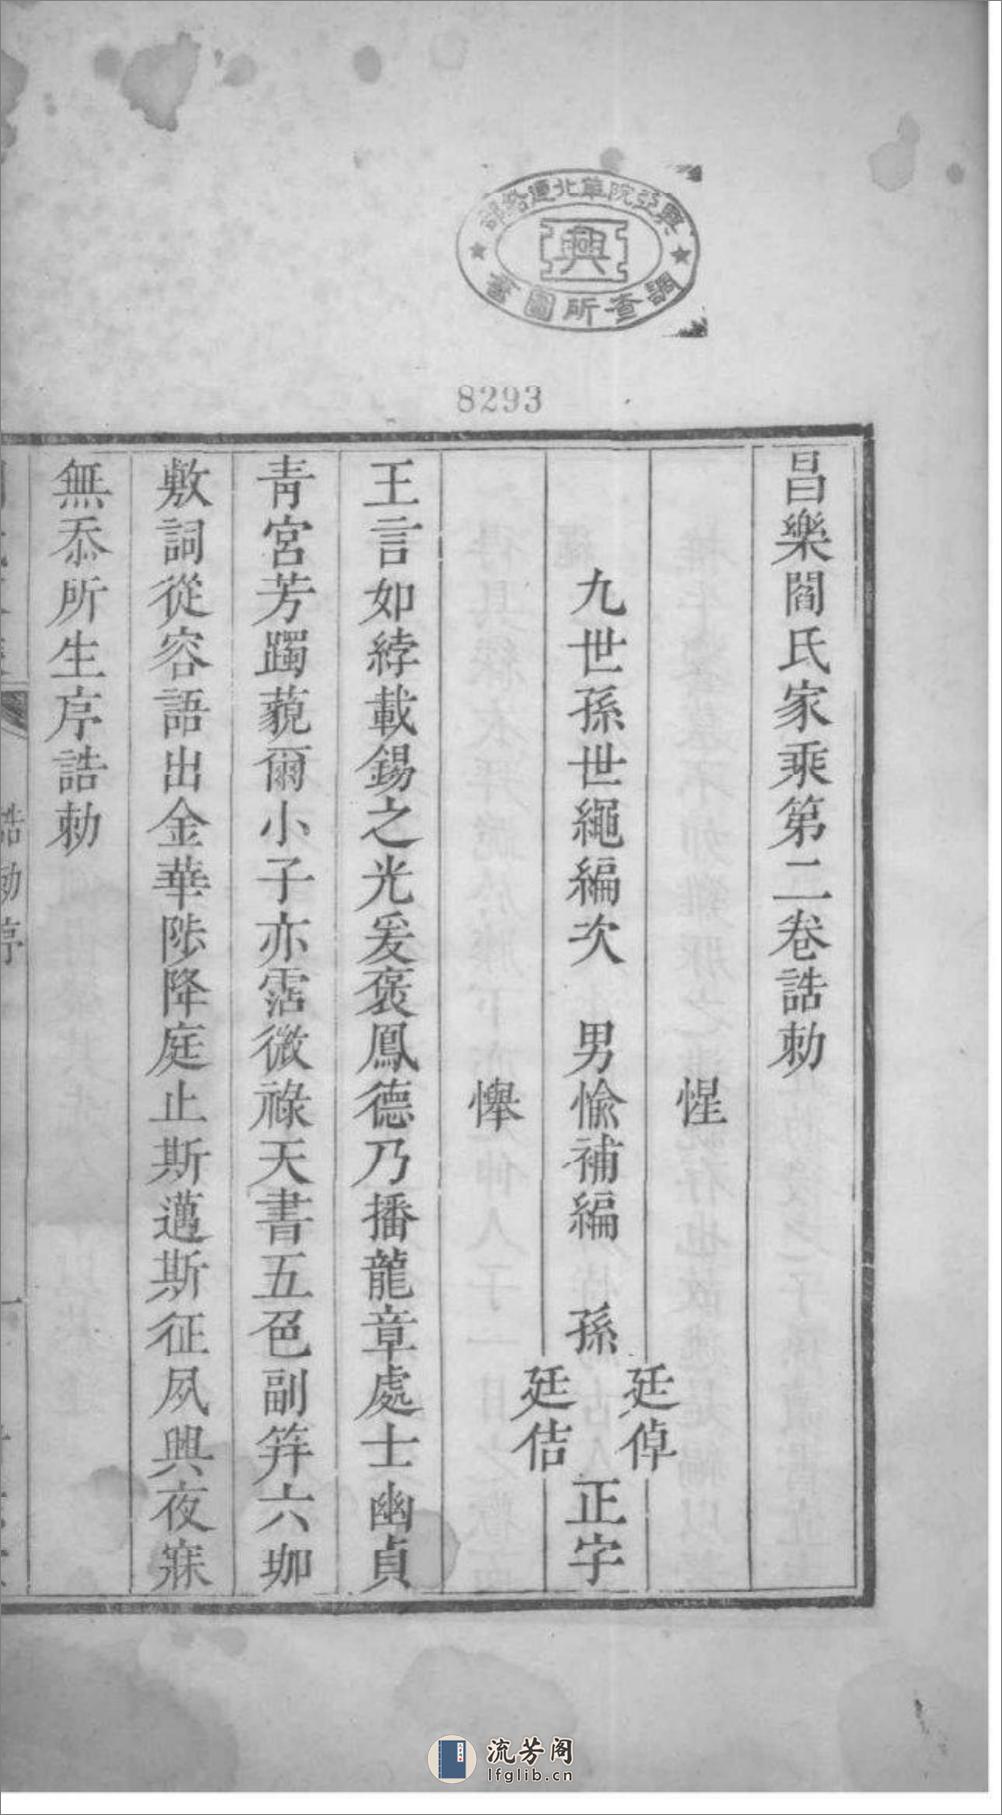 興亞院華北連絡部
興
調查所圖書
8293
昌樂閻氏家乘第二卷誥勅
惺
九世孫世繩編次　男愉補編　孫　正字
廷倬
廷佶
懌
王言如綍載錫之光爰褒鳳德乃播龍章處士幽貞
青宮芳躅藐爾小子亦霑微祿天書五色副笄六珈
敷詞從容語出金華陟降庭止斯邁斯征夙興夜寐
無忝所生序誥勅
誥勅序
一
流芳阁
lfglib.cn